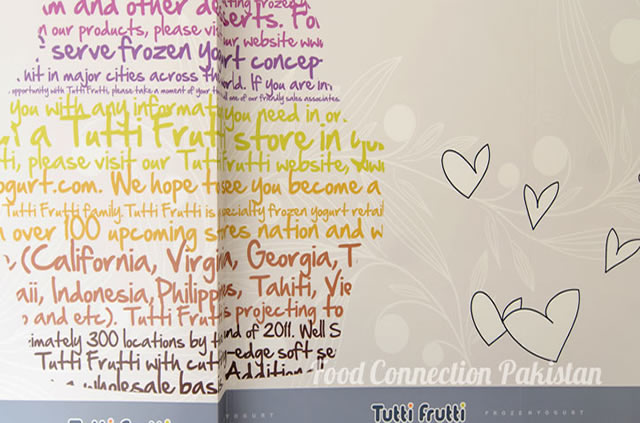 m and other de
serts. Fo
n our products, please visit our website www
serve frozen yogurt concep
hit in major cities across the world. If you are in
opportunity with Tutti Frutti, please take a moment of your
one of our friendly sales associates.
you with any information you need in or
a Tutti Frutti store in you
ti, please visit our Tutti Frutti website, ww
ogurt.com. We hope to see you become a
Tutti Frutti family. Tutti Frutti is specialty frozen yogurt retail
over 100 upcoming stores nation and w
(California, Virginia, Georgia, T
aii, Indonesia, Philippines, Tahiti, Vie
and etc). Tutti Frutti is projecting to
imately 300 locations by the end of 2011. Well S
Tutti Frutti with cutting-edge soft se
wholesale bas
Addition
Food Connection Pakistan
Tutti Frutti
YOGURT
Tutti Frutti FROZENYOGURT